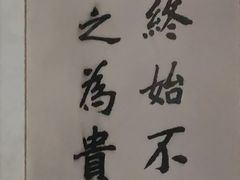 終始不
之為貴